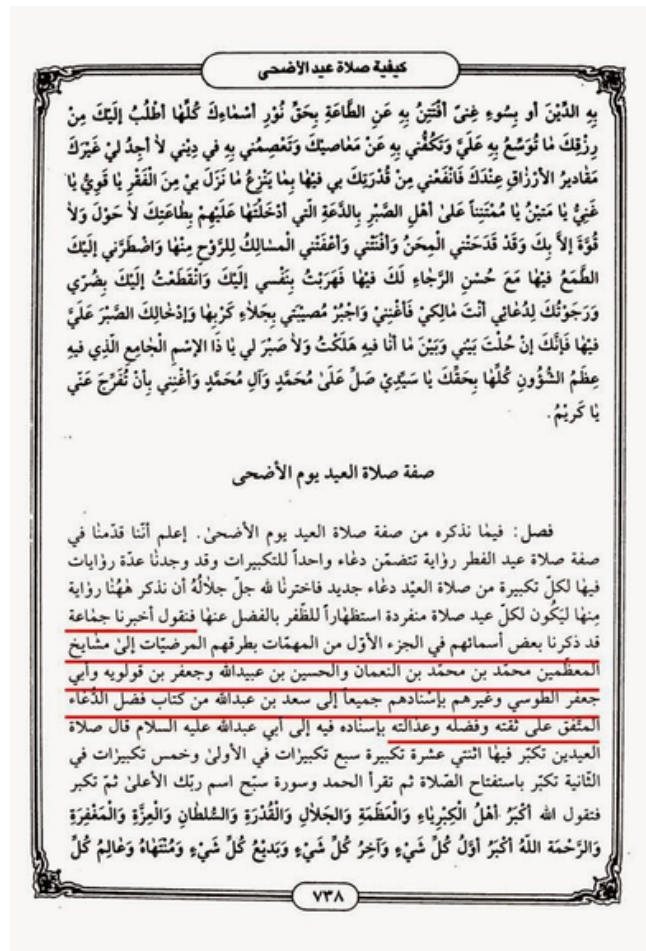 كيفية صلاة عيد الأضحى
بِهِ الدَّيْنَ أو بِسُوءِ غِنىً أفْتَتِنُ بِهِ عَنِ الطَّاعَةِ بِحَقِّ نُورِ أسْمٰاءِكَ كُلِّهٰا أطْلُبُ إلَيْكَ مِنْ
رِزْقِكَ مٰا تُوَسِّعُ بِهِ عَلَيَّ وَتَكُفُّنِي بِهِ عَنْ مَعٰاصيكَ وَتَعْصِمُني بِهِ في دِيْني لاٰ أجِدُ ليْ غَيْرَكَ
مَقٰاديرُ الأرْزٰاقِ عِنْدَكَ فَانْفَعْني مِنْ قُدْرَتِكَ بي فيْهٰا بِمٰا يَنْزِعُ مٰا نَزَلَ بيْ مِنَ الْفَقْرِ يٰا قَوِيُّ يٰا
غَنِيُّ يٰا مَتيْنُ يٰا مُمْتَنِناً عَلىٰ أهْلِ الصَّبْرِ بِالدَّعَةِ الَّتي أدْخَلْتَهٰا عَلَيْهِمْ بِطٰاعَتِكَ لاٰ حَوْلَ وَلاٰ
قُوَّةَ إلاّٰ بِكَ وَقَدْ قَدَحَتْني الْمِحَنُ وَأفْنَتْني وَأعْفَتْني الْمسٰالِكُ لِلرَّوْحِ مِنْهٰا وَاضْطَرَّني إلَيْكَ
الطَّمَعُ فيْهٰا مَعَ حُسْنِ الرَّجٰاءِ لَكَ فيْهٰا فَهَرَبْتُ بِنَفْسي إلَيْكَ وَانْقَطَعْتُ إلَيْكَ بِضُرّي
وَرَجَوْتُكَ لِدُعٰائي أنْتَ مٰالِكيْ فَأغْنِنيْ وَاجْبُرْ مُصيْبَتي بِجَلاٰءِ كَرْبِهٰا وَإدْخٰالِكَ الصَّبْرَ عَلَيَّ
فيْهٰا فَإنَّكَ إنْ حُلْتَ بَيْني وَبَيْنَ مٰا أنٰا فيهِ هَلَكْتُ وَلاٰ صَبْرَ لي يٰا ذَا الإسْمِ الْجٰامِعِ الَّذي فيهِ
عِظَمُ الشُّؤُونِ كُلِّهٰا بِحَقِّكَ يٰا سَيِّديْ صَلِّ عَلىٰ مُحَمَّدٍ وَآلِ مُحَمَّدٍ وَأغْنِني بِأنْ تُفَرِّجَ عَنّي
يٰا كَريْمُ.
صفة صلاة العيد يوم الأضحى
فصل: فيمٰا نذكره من صفة صلاة العيد يوم الأضحىٰ. إعلم أنّنٰا قدّمنٰا في
صفة صلاة عيد الفطر روٰاية تتضمّن دعٰاء واحداً للتكبيرات وقد وجدنٰا عدّة روٰايات
فيهٰا لكلّ تكبيرة من صلاة العيْد دعٰاء جديد فاخترنٰا لله جلّ جلاٰلُهُ أن نذكر هٰهُنٰا روٰاية
مِنهٰا ليَكُون لكلّ عيد صلاة منفردة استظهٰاراً للظّفر بالفضل عنهٰا فنقول أخبرنا جمٰاعة
قد ذكرنا بعض أسمائهم في الجزء الأوّل من المهمّات بطرقهم المرضيّات إلىٰ مشايخ
المعظّمين محمّد بن محمّد بن النعمان والحسين بن عبيدالله وجعفر بن قولويه وأبي
جعفر الطوسي وغيرهم بإسْنادهم جميعاً إلى سعد بن عبدالله من كتاب فضل الدُّعٰاء
المتّفق على ثقته وفضله وعدٰالته بإسنٰاده فيه إلى أبي عبدالله عليه السلام قال صلاة
العيدين تكبّر فيهٰا اثنتي عشرة تكبيرة سبع تكبيرات في الأولىٰ وخمس تكبيرات في
الثّانية تكبّر باستفتاح الصّلاة ثم تقرأ الحمد وسورة سبّح اسم ربّك الأعلىٰ ثمّ تكبر
فتقول الله أكْبَرُ أهْلُ الْكِبْرِيٰاءِ وَالْعَظَمَةِ وَالْجَلاٰلِ وَالْقُدْرَةِ وَالسُّلطٰانِ وَالْعِزَّةِ وَالْمَغْفِرَةِ
وَالرَّحْمَة اللّهُ أكْبَرُ أوَّلُ كُلِّ شَيْءٍ وَآخِرُ كُلِّ شَيْءٍ وَبَديْعُ كُلِّ شَيْءٍ وَمُنْتَهٰاهُ وَعٰالِمُ كُلِّ
٧٣٨